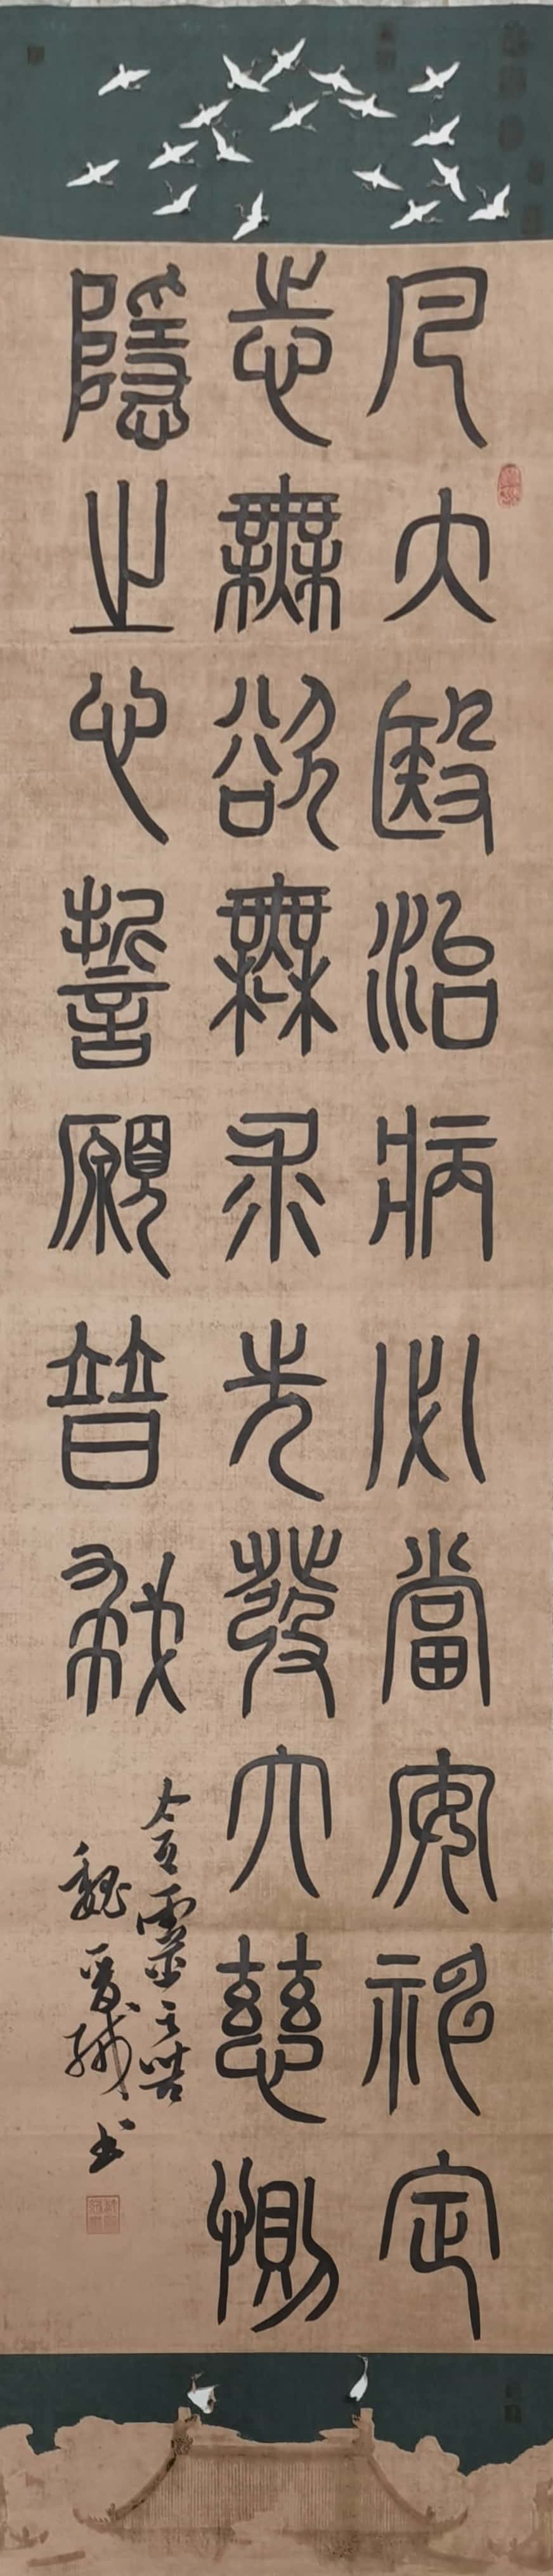 凡大醫治病必當安神定
志無欲無求先發大慈惻
隱之心誓願普救
含靈之苦
魏書